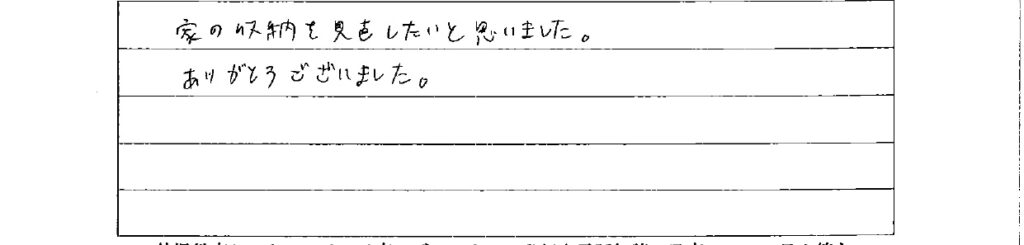 家の収納を見直したいと思いました。
ありがとうございました。